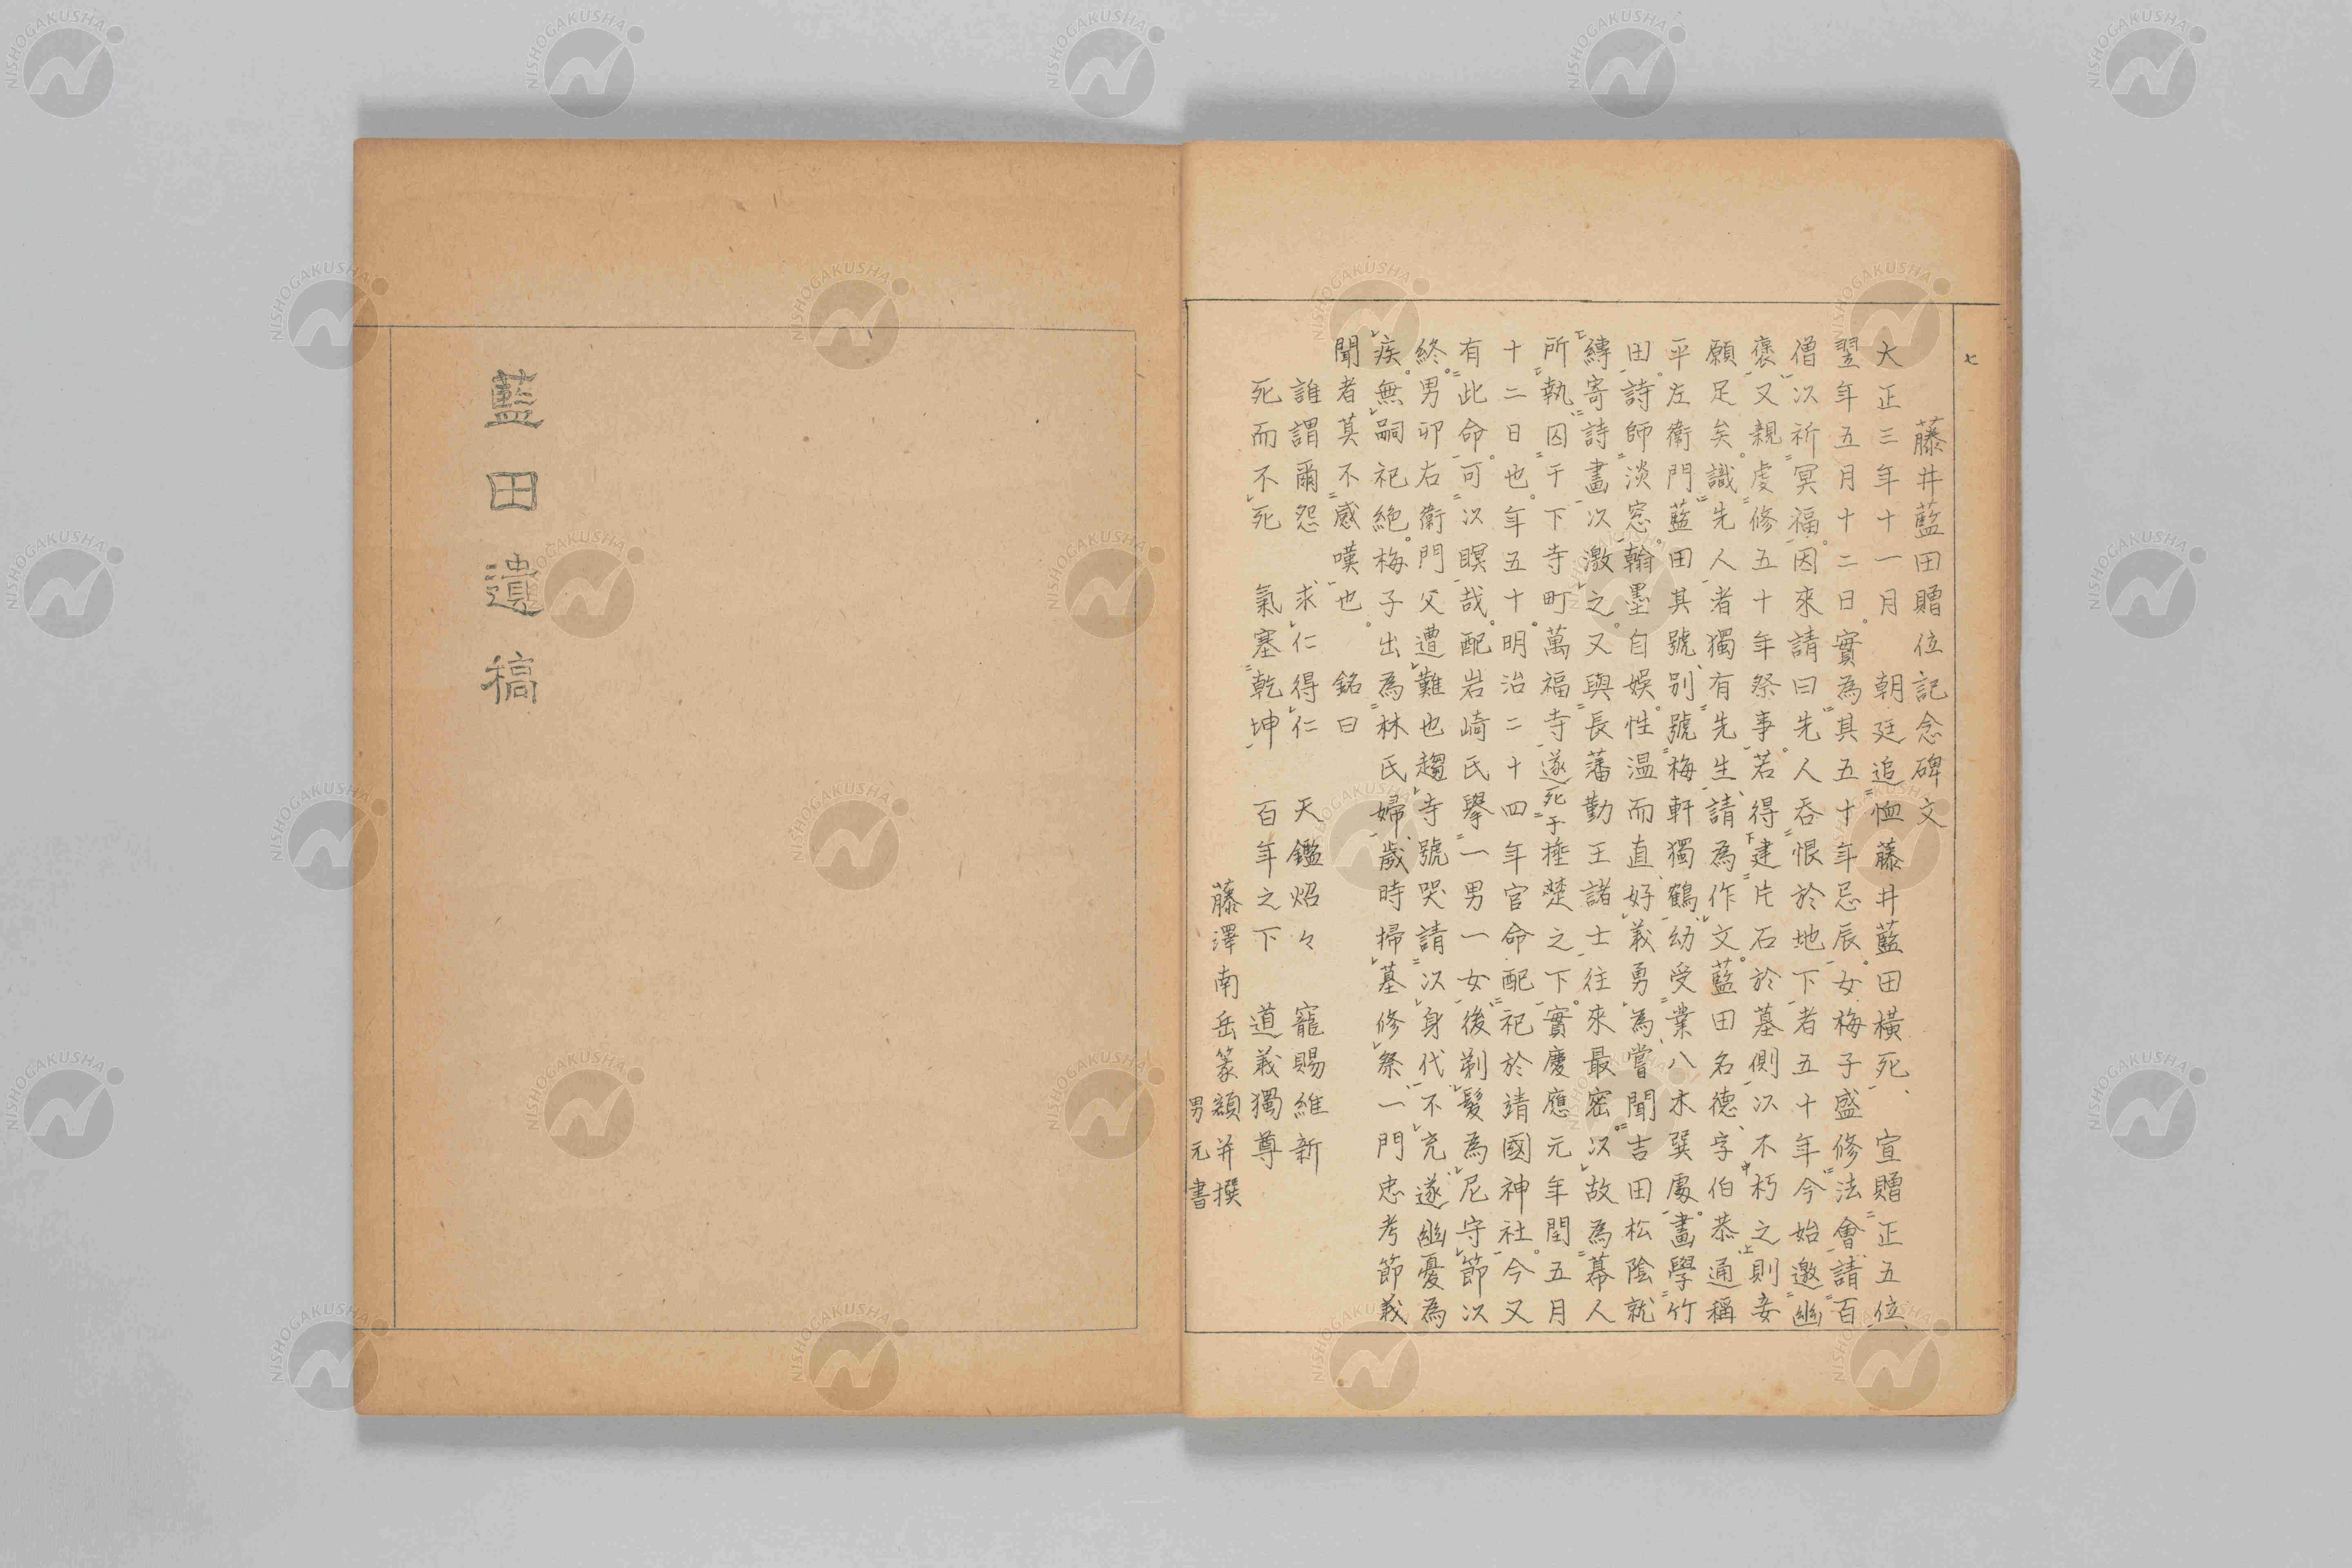 七
藤井藍田贈位記念碑文
大正三年十一月　朝廷追恤藤井藍田橫死、宣贈正五位、
翌年五月十二日。實為其五十年忌辰。女梅子盛修法會請百
僧以祈冥福。因來請曰先人吞恨於地下者五十年今始邀幽
褒又親虔修五十年祭事。若得建片石於墓側以不朽之則妾
願足矣。識先人者獨有先生、請為作文。藍田名德、字伯恭、通稱
平左衛門藍田其號、別號梅軒獨鶴、幼受業八木巽處。畫學竹
田。詩師淡窓。翰墨自娛。性温而直好義勇為、嘗聞吉田松陰就
縛寄詩畫以激之。又與長藩勤王諸士往來最密。以故為幕人
所執囚于下寺町萬福寺遂死于捶楚之下。實慶應元年閏五月
十二日也。年五十。明治二十四年官命配祀於靖國神社。今又
有此命。可以瞑哉。配岩崎氏擧一男一女後剃髮為尼守節以
終。男卯右衛門父遭難也趨寺號哭請以身代不充遂幽憂為
疾。無嗣祀絶。梅子出為林氏婦、歲時掃墓修祭一門忠考節義
聞者莫不感嘆也。　銘曰
誰謂爾怨　求仁得仁　天鑑炤々　寵賜維新
死而不死　氣塞乾坤　百年之下　道義獨尊
藤澤南岳篆額并撰
男元書
藍田遺稿
NISHOGAKUSHA